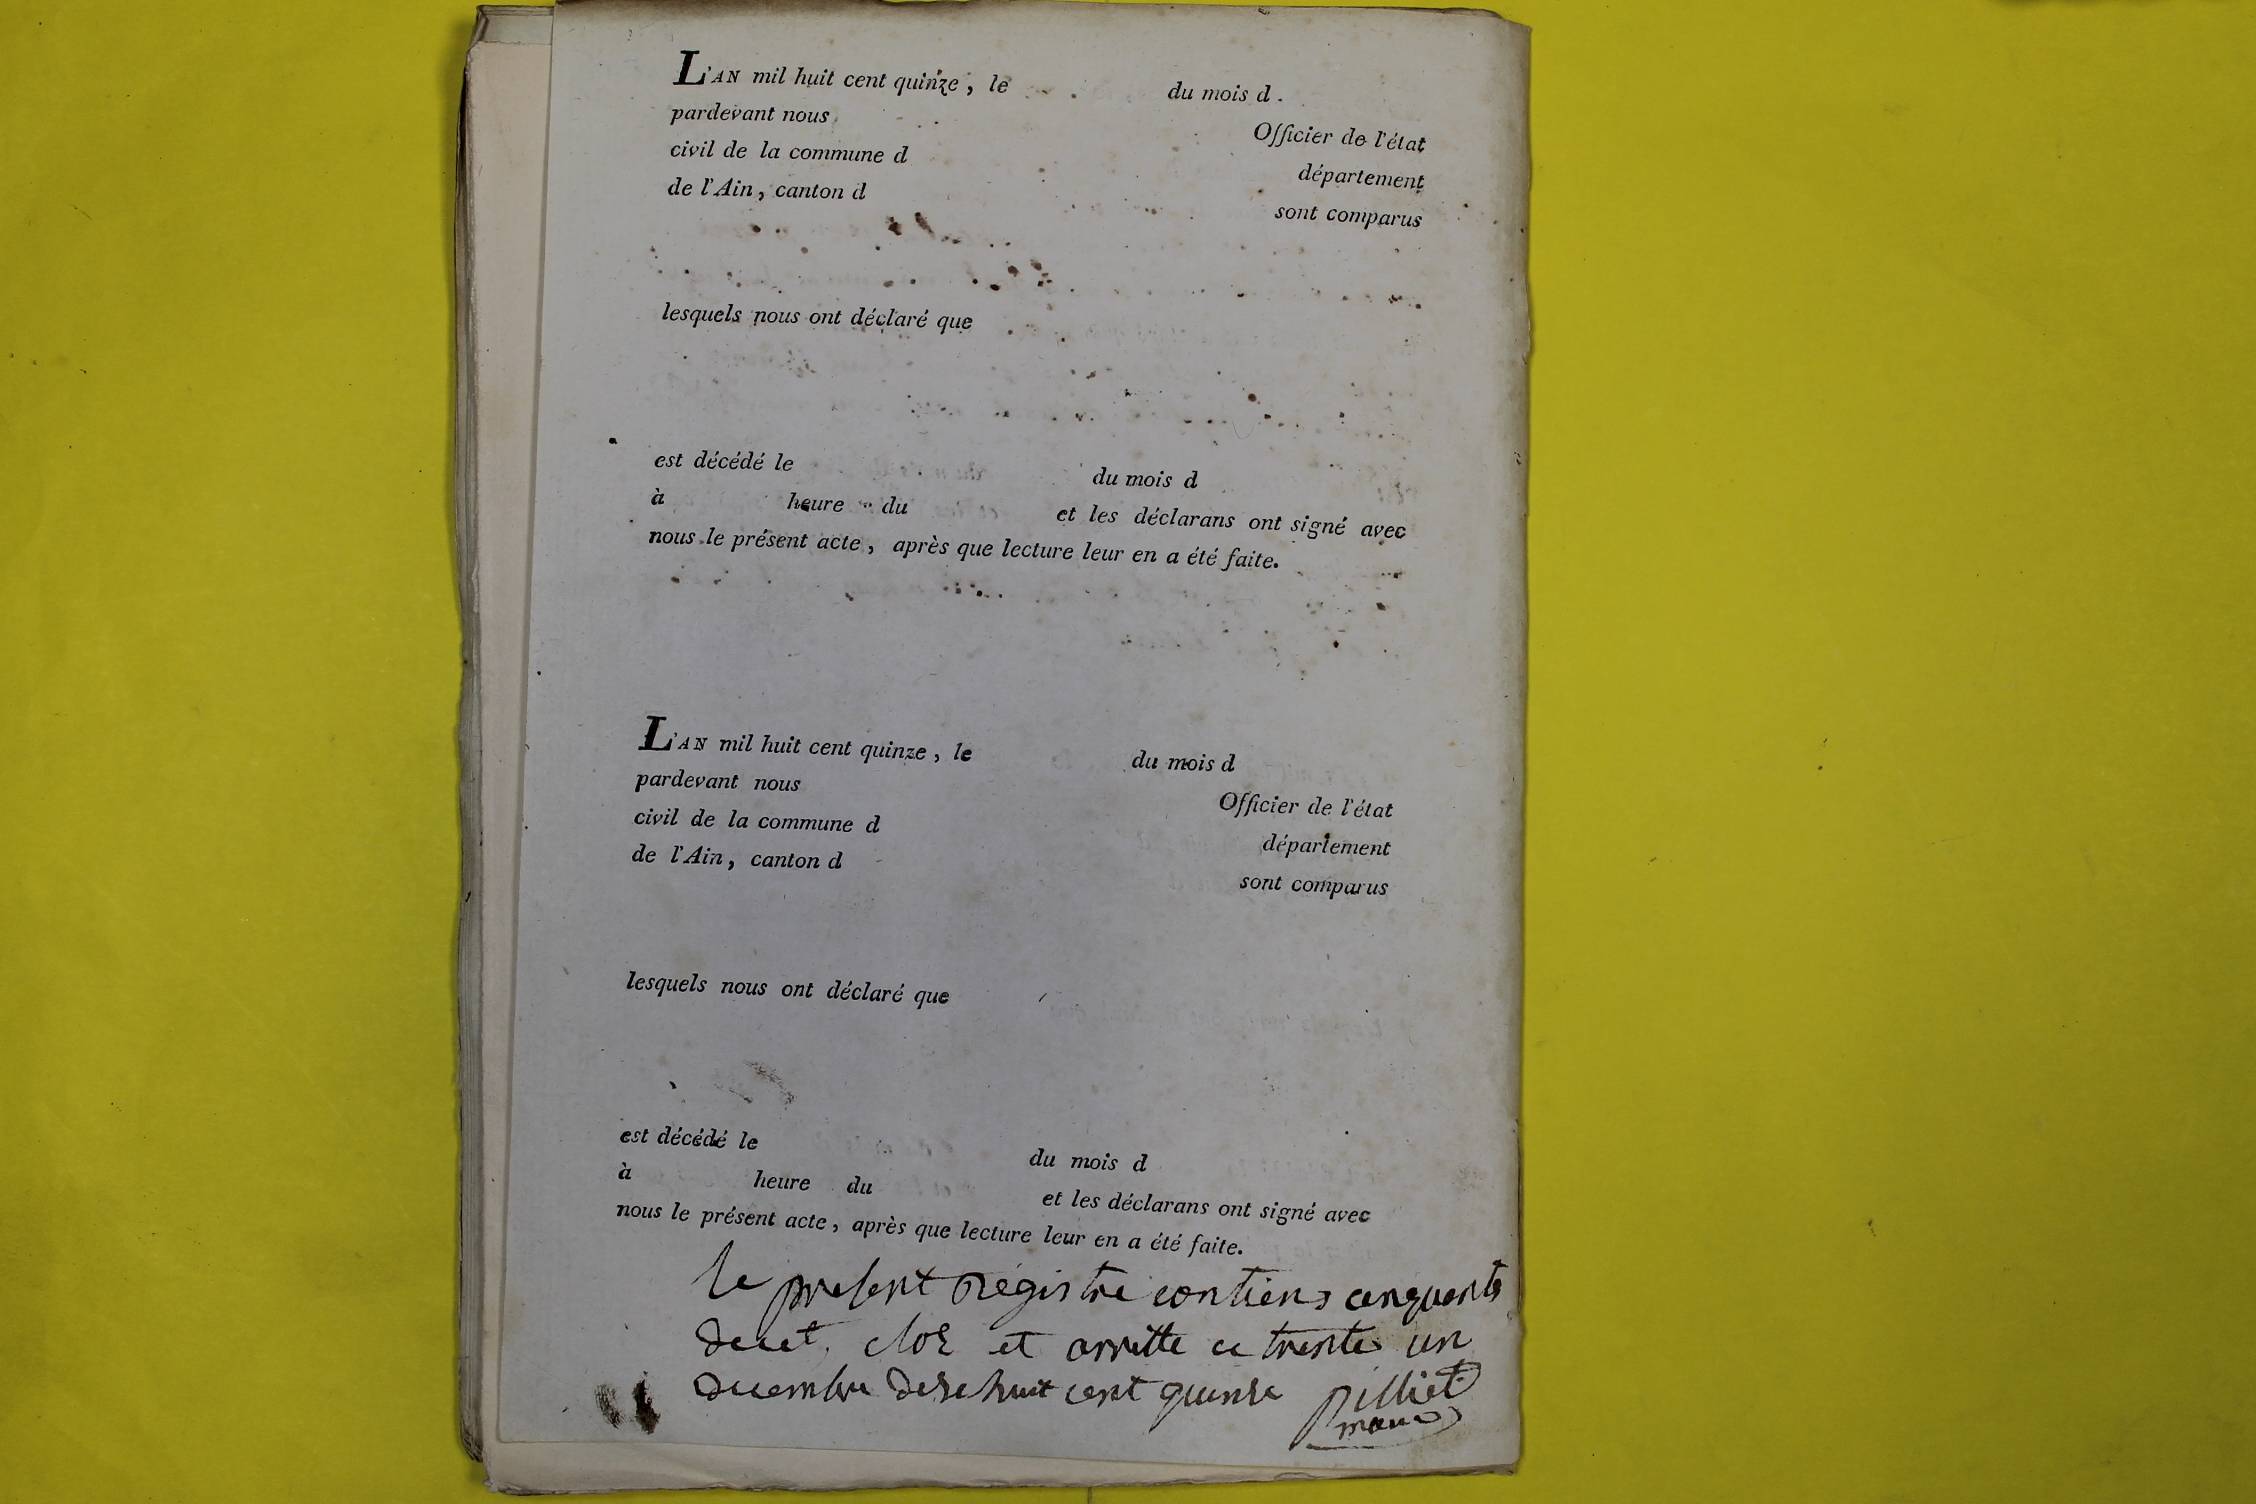 L'AN mil huit cent quinze, le du mois d
pardevant nous Officier de l'état
civil de la commune d département
de l'Ain, canton d sont comparus
lesquels nous ont déclaré que
est décédé le du mois d
à heure du et les déclarans ont signé avec
nous le présent acte, après que lecture leur en a été faite.
L'AN mil huit cent quinze, le du mois d
pardevant nous Officier de l'état
civil de la commune d département
de l'Ain, canton d sont comparus
lesquels nous ont déclaré que
est décédé le du mois d
à heure du et les déclarans ont signé avec
nous le présent acte, après que lecture leur en a été faite.
le present Régistre contiens cenquente
clos et arritte ce trente un
decembre huit cent quinse pilliet